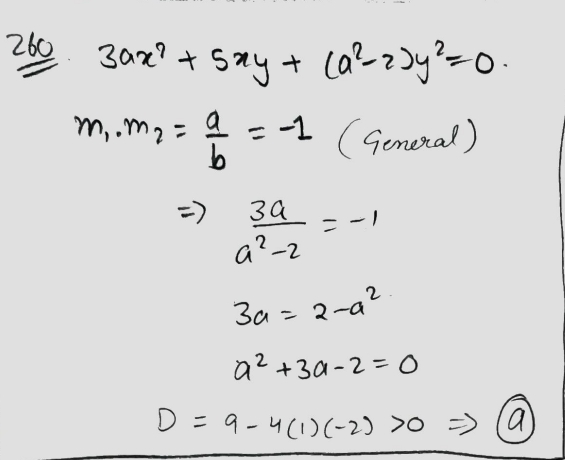 260. 3ax² + 5xy + (a²-2)y² = 0.
m₁.m₂ = a/b = -1 (General)
=> 3a/(a²-2) = -1
3a = 2-a²
a² + 3a - 2 = 0
D = 9 - 4(1)(-2) > 0 => (a)